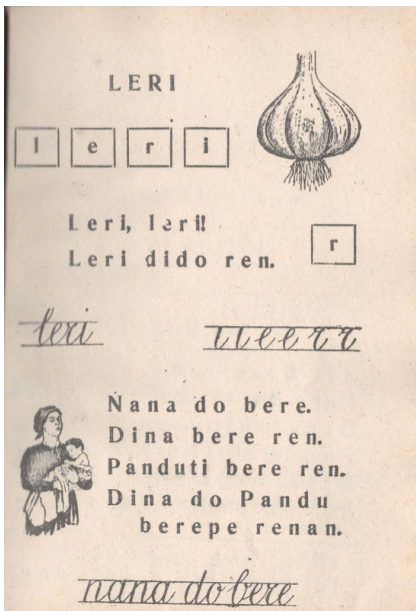 LERI
l e r i
Leri, leri!
r
Leri dido ren.
leri
ııeerr
Nana do bere.
Dina bere ren.
Panduti bere ren.
Dina do Pandu
berepe renan.
nana do bere